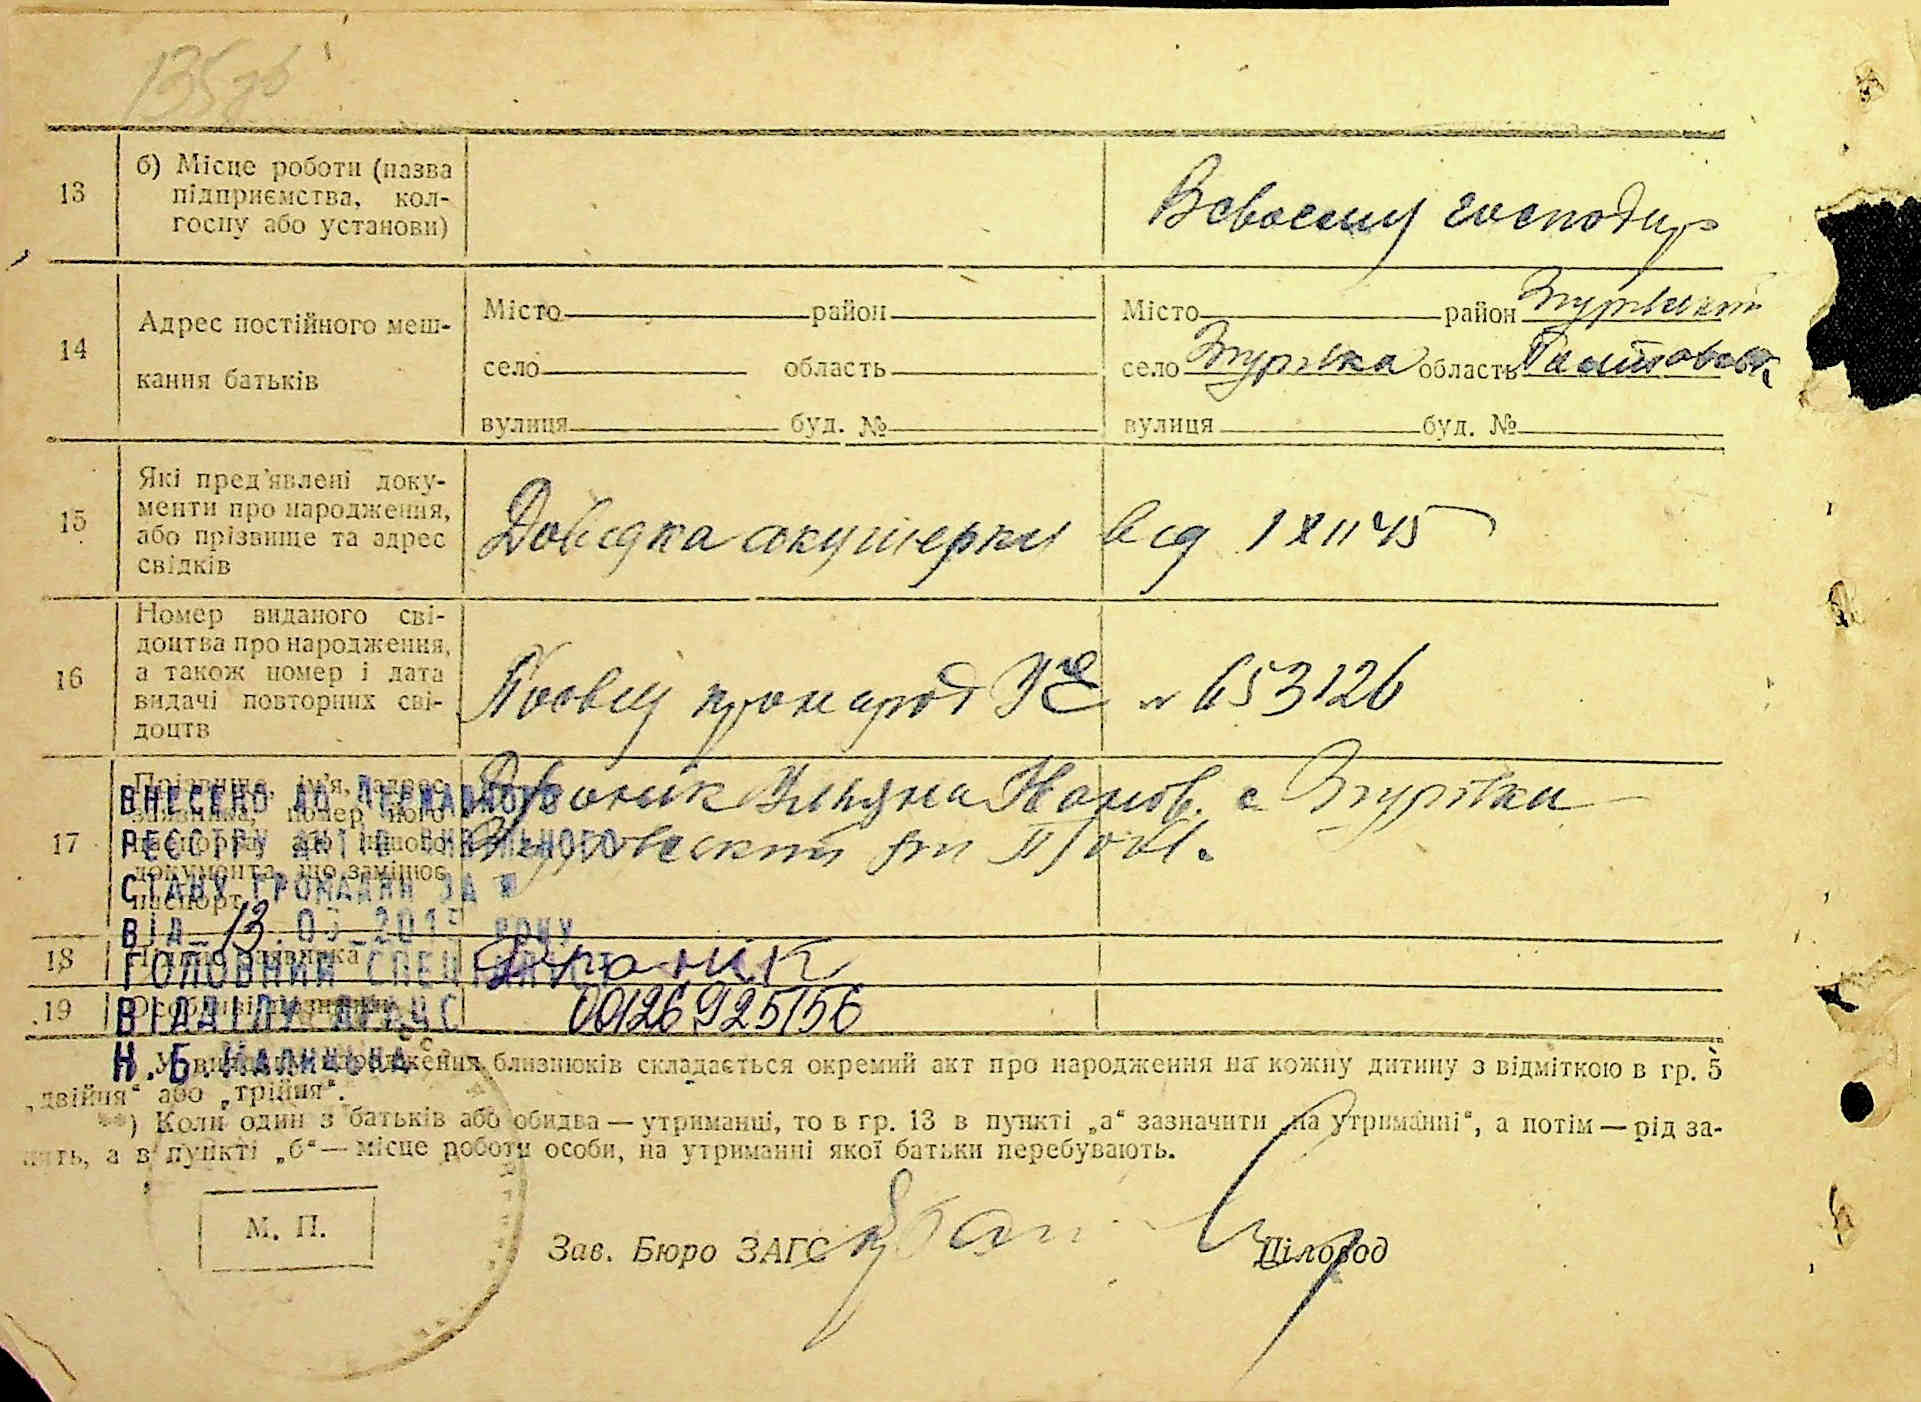 135зв
13
б) Місце роботи (назва
підприємства, кол-
госпу або установи)
Всвоєму господар
14
Адрес постійного меш-
кання батьків
Місто район
село область
вулиця буд. №
Місто район Згурівський
село Згурівка область Полтавськ
вулиця буд. №
15
Які пред'явлені доку-
менти про народження,
або прізвище та адрес
свідків
Довідка акушерки від 1 XII 45
16
Номер виданого сві-
доцтва про народження,
а також номер і дата
видачі повторних сві-
доцтв
про народ УЕ № 653126
17
Прізвище, ім'я, адрес
заявника, номер його
паспорта або іншого
документа, що замінює
паспорт
Дроник с Згурівки
Згуровський
ВНЕСЕНО ДО ДЕРЖАВНОГО
РЕЄСТРУ АКТІВ ЦИВІЛЬНОГО
СТАНУ ГРОМАДЯН ЗА №
ВІД 13.03.2015 РОКУ
ГОЛОВНИЙ СПЕЦІАЛІСТ
ВІДДІЛУ ДРАЦС
Н.Б.
18
Підпис заявника
Дроник
19
Особливі відмітки
00126925156
У випадку народження близнюків складається окремий акт про народження на кожну дитину з відміткою в гр. 5
„двійня“ або „трійня“.
**) Коли один з батьків або обидва — утриманці, то в гр. 13 в пункті „а“ зазначити „на утриманні“, а потім — рід за-
нять, а в пункті „б“ — місце роботи особи, на утриманні якої батьки перебувають.
М. П.
Зав. Бюро ЗАГС
Діловод